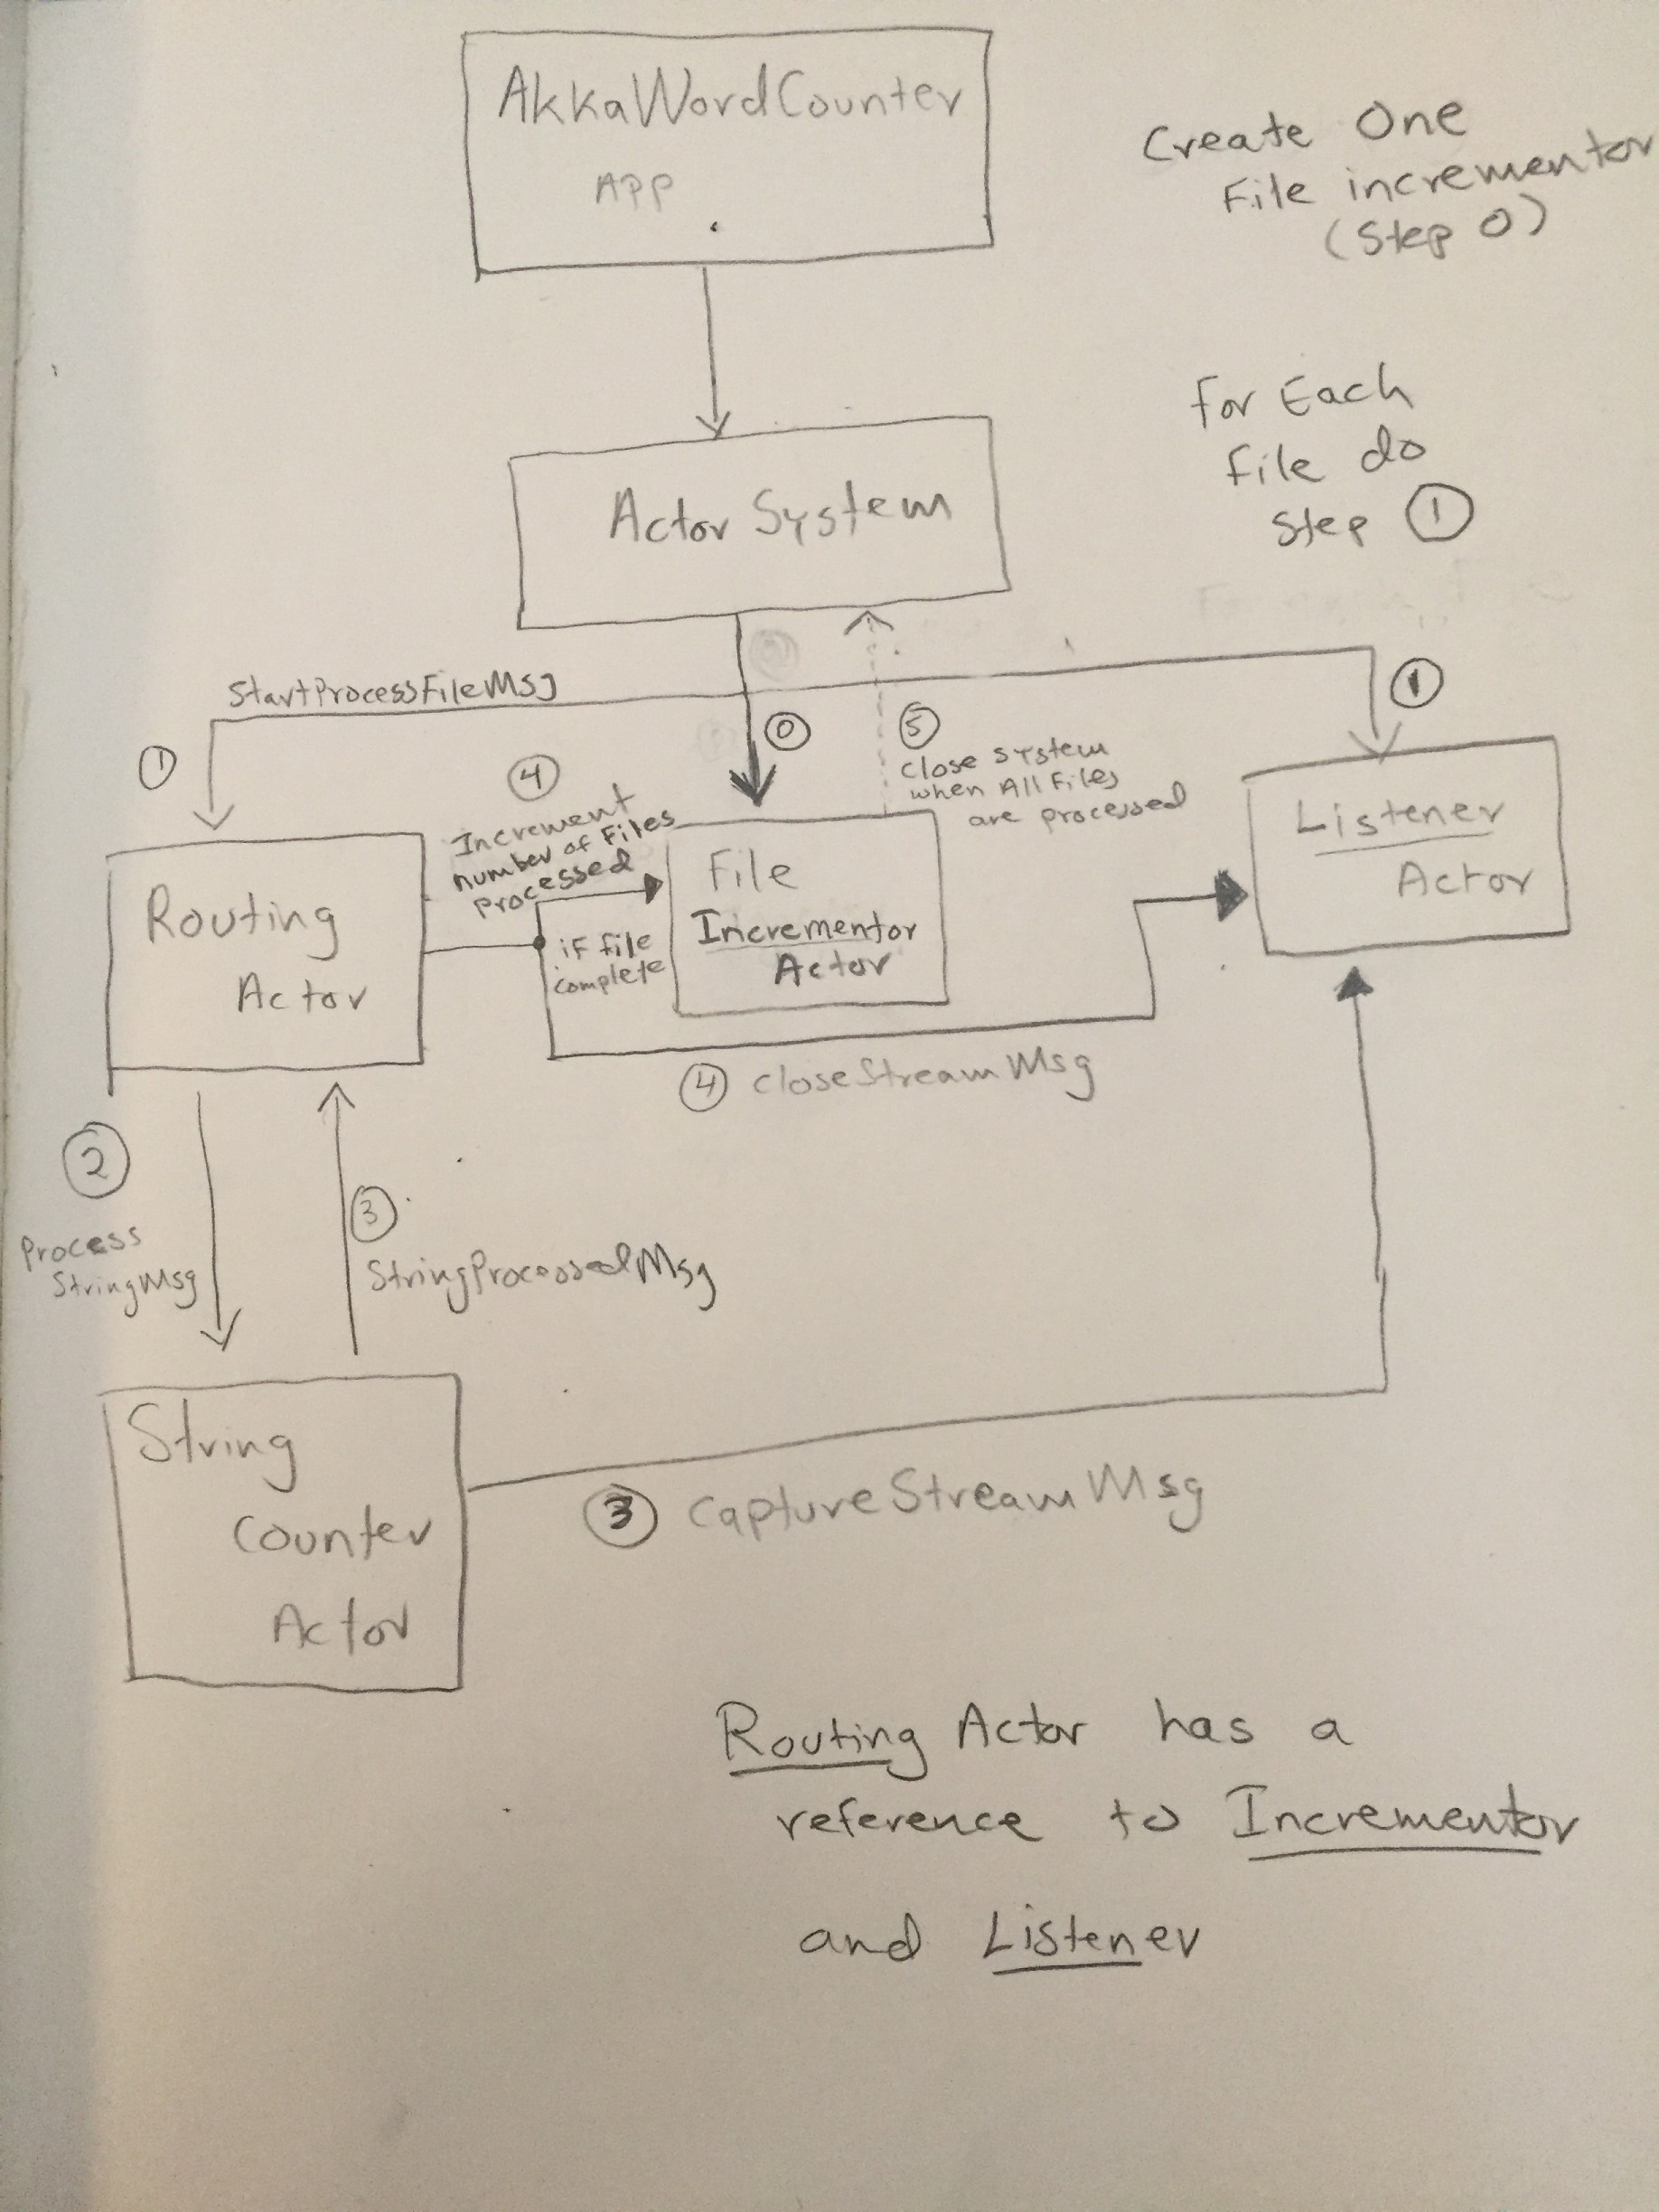 AkkaWordCounter
APP
Create One
File incrementor
(Step 0)
for Each
file do
Step 1
Actor System
StartProcessFileMsg
1
0
1
5
close system
when All Files
are processed
4
Increment
number of Files
processed
Routing
Actor
if file
complete
File
Incrementor
Actor
Listener
Actor
4 closeStreamMsg
2
Process
StringMsg
3
StringProcessedMsg
String
Counter
Actor
3 CaptureStreamMsg
Routing Actor has a
reference to Incrementor
and Listener